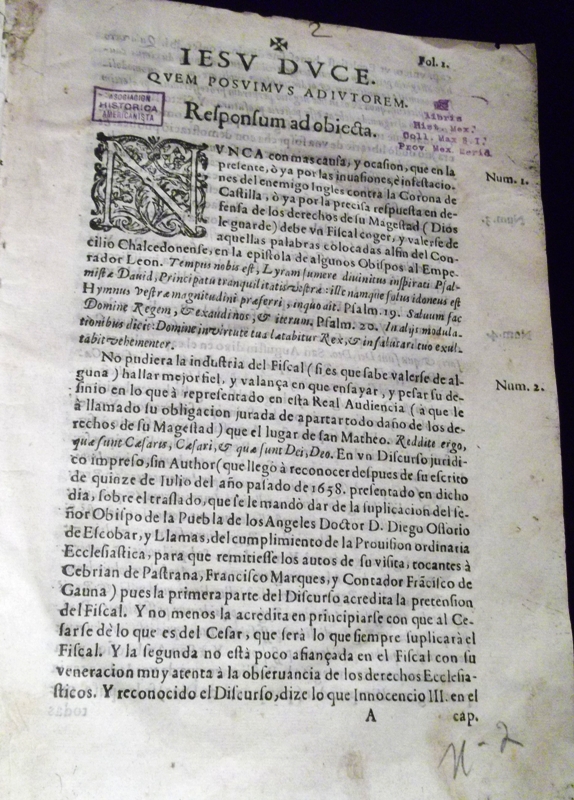 2
✠
Fol. 1.
IESV DVCE.
QVEM POSVIMVS ADIVTOREM.
ASOCIACION
HISTORICA
AMERICANISTA
Responsum ad obiecta.
libris
Hist. Mex.
Coll. Max S.I.
Prov Mex Merid
NVNCA con mas causa, y ocasion, que en la
presente, ò ya por las inuasiones, è infestacio-
nes del enemigo Ingles contra la Corona de
Castilla, ò ya por la precisa respuesta en de-
fensa de los derechos de su Magestad (Dios
le guarde) debe vn Fiscal coger, y valerse de
aquellas palabras colocadas al fin del Con-
cilio Chalcedonense, en la epistola de algunos Obispos al Empe-
rador Leon. Tempus nobis est, Lyram sumere diuinitus inspirati Psal-
mistæ Dauid, Principatu tranquilitatis vestræ: ille namque salus idoneus est
Hymnus vestræ magnitudini præferri, inquo ait. Psalm. 19. Saluum fac
Domine Regem, & exaudi nos, & iterum. Psalm. 20. In alijs modula-
tionibus dicis: Domine in virtute tua lætabitur Rex, & in salutari tuo exul-
tabit vehementer.
Num. 1.
No pudiera la industria del Fiscal (si es que sabe valerse de al-
guna) hallar mejor fiel, y valança en que ensayar, y pesar su de-
sinio en lo que à representado en esta Real Audiencia (à que le
à llamado su obligacion jurada de apartar todo daño de los de-
rechos de su Magestad) que el lugar de san Matheo. Reddite ergo,
quæ sunt Cæsaris, Cæsari, & quæ sunt Dei, Deo. En vn Discurso juridi-
co impreso, sin Author (que llegò à reconocer despues de su escrito
de quinze de Julio del año pasado de 1658. presentado en dicho
dia, sobre el traslado, que se le mandò dar de la suplicacion del se-
ñor Obispo de la Puebla de los Angeles Doctor D. Diego Ossorio
de Escobar, y Llamas, del cumplimiento de la Prouision ordinaria
Ecclesiastica, para que remitiesse los autos de su visita, tocantes à
Cebrian de Pastrana, Francisco Marques, y Contador Frãcisco de
Gauna) pues la primera parte del Discurso acredita la pretension
del Fiscal. Y no menos la acredita en principiarse con que al Ce-
sar se dè lo que es del Cesar, que serà lo que siempre suplicarà el
Fiscal. Y la segunda no està poco afiançada en el Fiscal con su
veneracion muy atenta à la obseruancia de los derechos Ecclesia-
sticos. Y reconocido el Discurso, dize lo que Innocencio III. en el
Num. 2.
A
cap.